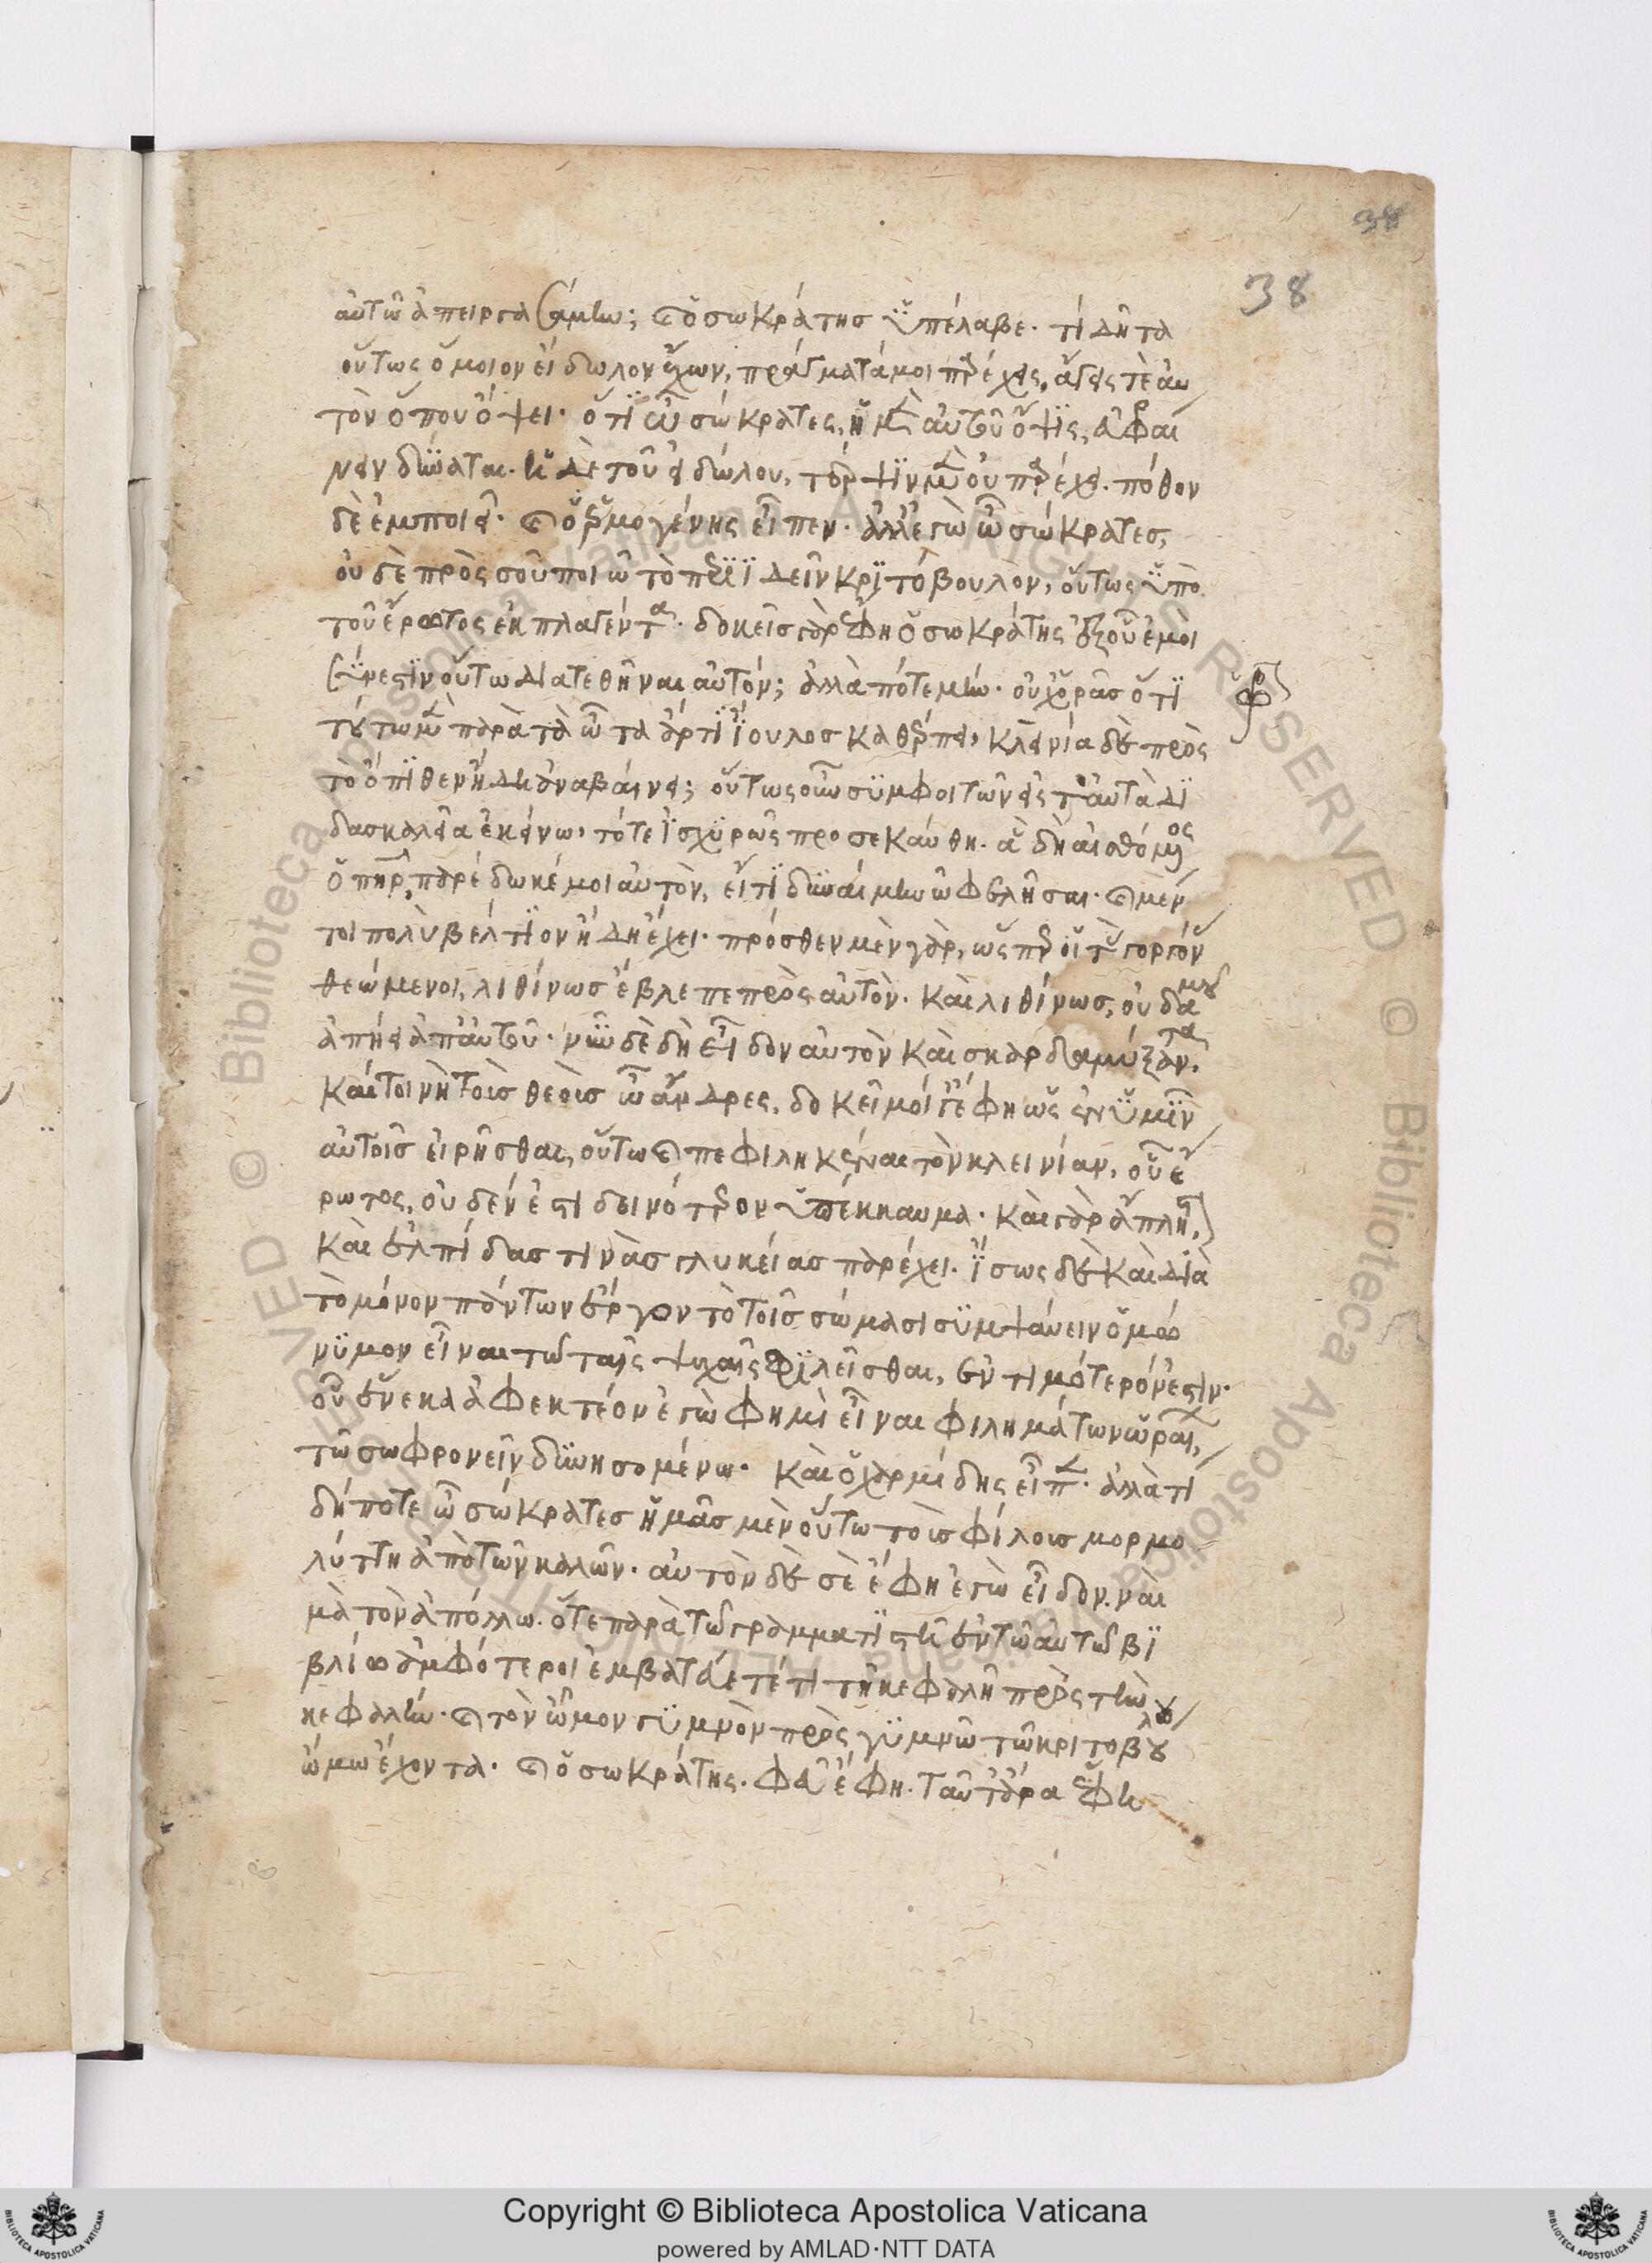 38
38
αὐτῶ ἀπειργασάμην; καὶ ὁ σωκράτησ ὑπέλαβε· τί δῆτα
οὕτως ὅμοιον εἴδωλον ἔχων, πράγματά μοι παρέχεις, ἄγεις τὲ αὐ
τὸν ὅπου ὄψει· ὅτι ὦ σώκρατες, ἡ μὲν αὐτοῦ ὄψις, εὐφραί
νειν δύναται. ἡ δὲ τοῦ εἰδώλου, τέρψιν μὲν οὐ παρέχει. πόθον
δὲ ἐμποιεῖ· καὶ ὁ ἑρμογένης εἶπεν· ἀλλ' ἐγὼ ὦ σώκρατεσ,
οὐδὲ πρὸς σοῦ ποιῶ τὸ περιϊδεῖν κριτόβουλον, οὕτως ὑπὸ
τοῦ ἔρωτος ἐκπλαγέντα· δοκεῖς γὰρ ἔφη ὁ σωκράτης ἐξ οὗ ἐμοὶ
σύνεστιν οὕτω διατεθῆναι αὐτόν; ἀλλὰ πότε μήν· οὐχ ὁρᾶσ ὅτι
τούτω μὲν παρὰ τὰ ὦτα ἄρτι ἴουλοσ καθέρπει, κλεινία δὲ πρὸς
τὸ ὄπιθεν ἤδη ἀναβαίνει; οὕτως οὖν συμφοιτῶν εἰς ταὐτὰ δι
δασκαλεῖα ἐκείνω, τότε ἰσχυρῶς προσεκαύθη. ἃ δὴ αἰσθόμενος
ὁ πατὴρ, παρέδωκέ μοι αὐτὸν, εἴ τι δυναίμην ὠφελῆσαι· καὶ μέν
τοι πολὺ βέλτιον ἤδη ἔχει· πρόσθεν μὲν γὰρ, ὥσπερ οἱ τὰς γοργόνας
θεώμενοι, λιθίνωσ ἔβλεπε πρὸς αὐτὸν. καὶ λιθίνωσ, οὐδαμοῦ
ἀπήει ἀπ' αὐτοῦ· νῦν δὲ δὴ εἶδον αὐτὸν καὶ σκαρδαμύξαντα.
καίτοι νὴ τοὺσ θεοὺσ ὦ ἄνδρες, δοκεῖ μοί γέ φη ὡς ἐν ὑμῖν
αὐτοῖσ εἰρῆσθαι, οὕτω καὶ πεφιληκέναι τὸν κλεινίαν, οὗ ἔ
ρωτος, οὐδέν ἐστι δεινότερον ὑπέκκαυμα· καὶ γὰρ ἄπληστον,
καὶ ἐλπίδασ τινὰσ γλυκείασ παρέχει. ἴσως δὲ καὶ διὰ
τὸ μόνον πάντων ἔργον τὸ τοῖσ σώμασι συμψαύειν ὁμώ
νυμον εἶναι τῶ ταῖς ψυχαῖς φιλεῖσθαι, ἐντιμότερόν ἐστιν·
οὗ ἕνεκα ἀφεκτέον ἐγὼ φημὶ εἶναι φιλημάτων ὡραίων,
τῶ σωφρονεῖν δυνησομένω· καὶ ὁ χαρμίδης εἶπεν· ἀλλὰ τί
δήποτε ὦ σώκρατεσ ἡμᾶσ μὲν οὕτω τοὺσ φίλουσ μορμο
λύττη ἀπὸ τῶν καλῶν· αὐτὸν δὲ σὲ ἔφη ἐγὼ εἶδον. ναὶ
μὰ τὸν ἀπόλλω. ὅτε παρὰ τῶ γραμματιστῆ ἐν τῶ αὐτῶ βι
βλίω ἀμφότεροι ἐμβατεύετέ τι τὴν κεφαλὴν πρὸς τὴν
κεφαλήν· καὶ τὸν ὦμον γυμνὸν πρὸς γυμνῶ τῶ κριτοβούλου
ὤμω ἔχοντα· καὶ ὁ σωκράτης. φεῦ ἔφη. ταῦτ' ἄρα ἔφη
Copyright © Biblioteca Apostolica Vaticana
powered by AMLAD·NTT DATA